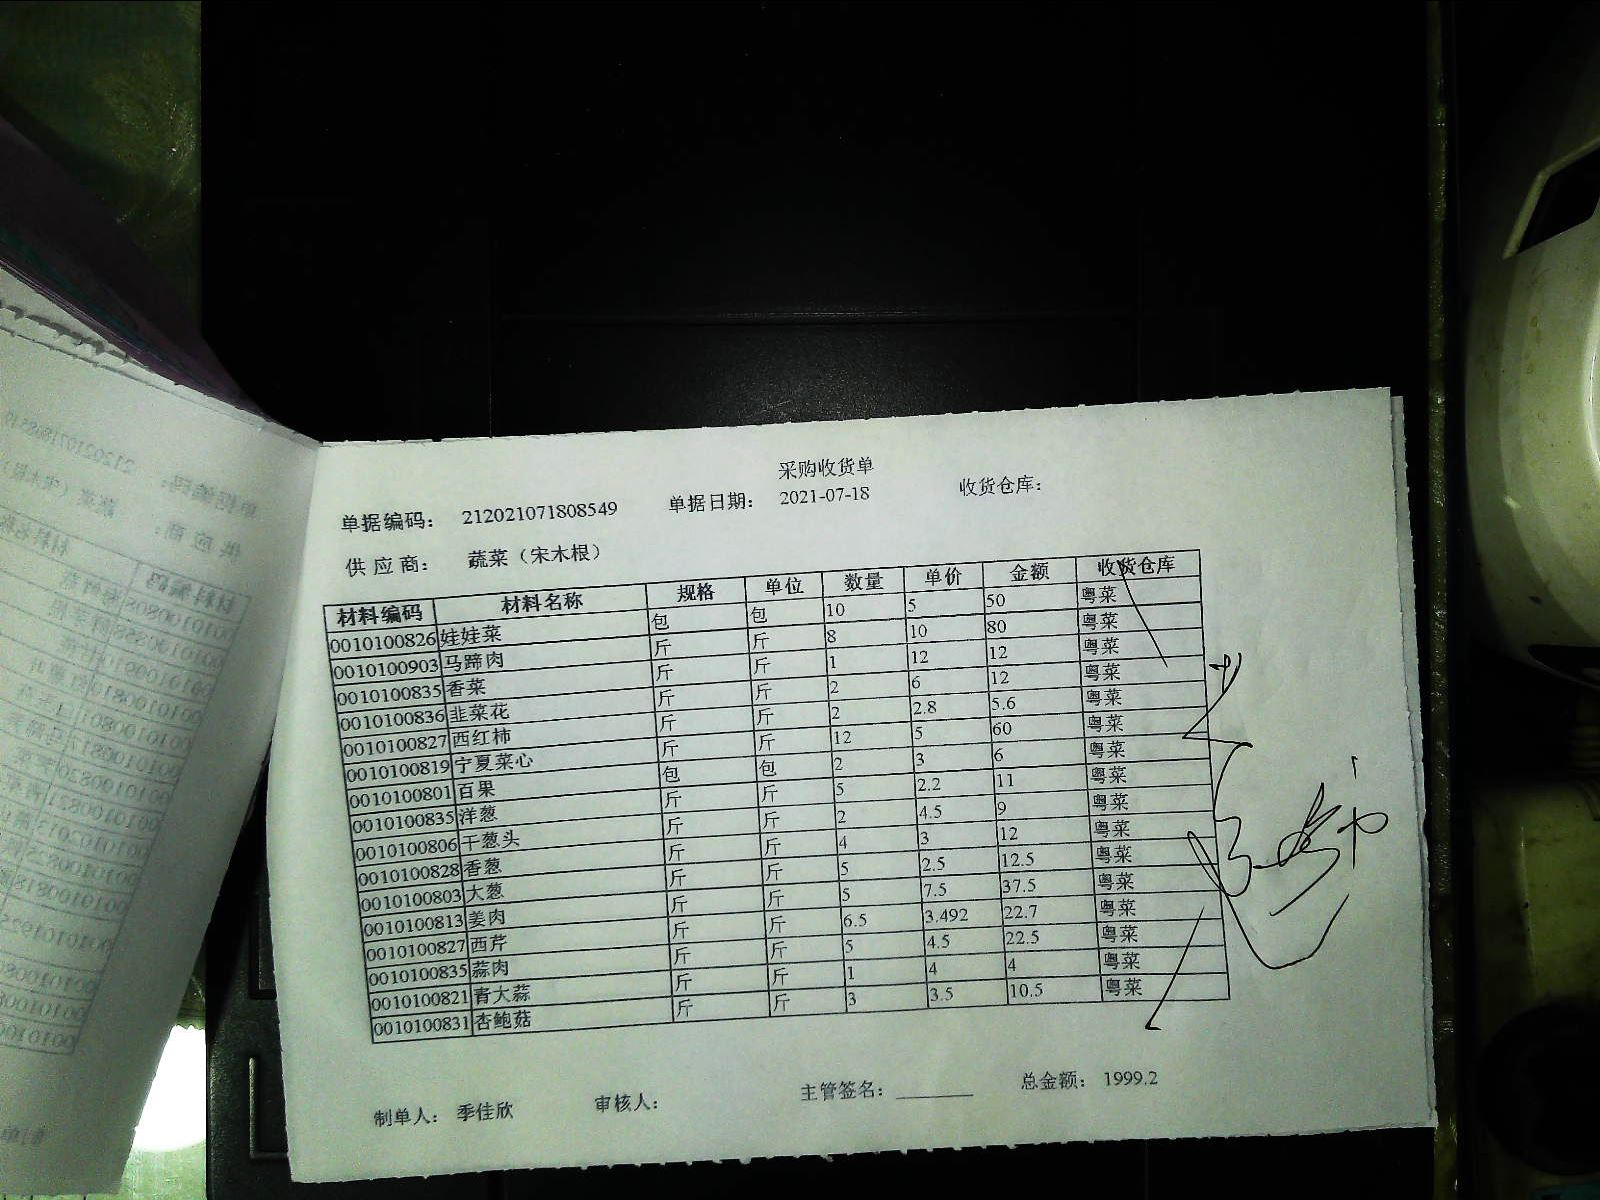 采购收货单
单据编码： 212021071808549 单据日期： 2021-07-18 收货仓库：
供 应 商： 蔬菜（宋木根）
材料编码 材料名称 规格 单位 数量 单价 金额 收货仓库
0010100826 娃娃菜 包 包 10 5 50 粤菜
0010100903 马蹄肉 斤 斤 8 10 80 粤菜
0010100835 香菜 斤 斤 1 12 12 粤菜
0010100836 韭菜花 斤 斤 2 6 12 粤菜
0010100827 西红柿 斤 斤 2 2.8 5.6 粤菜
0010100819 宁夏菜心 斤 斤 12 5 60 粤菜
0010100801 百果 包 包 2 3 6 粤菜
0010100835 洋葱 斤 斤 5 2.2 11 粤菜
0010100806 干葱头 斤 斤 2 4.5 9 粤菜
0010100828 香葱 斤 斤 4 3 12 粤菜
0010100803 大葱 斤 斤 5 2.5 12.5 粤菜
0010100813 姜肉 斤 斤 5 7.5 37.5 粤菜
0010100827 西芹 斤 斤 6.5 3.492 22.7 粤菜
0010100835 蒜肉 斤 斤 5 4.5 22.5 粤菜
0010100821 青大蒜 斤 斤 1 4 4 粤菜
0010100831 杏鲍菇 斤 斤 3 3.5 10.5 粤菜
制单人： 季佳欣 审核人： 主管签名： 总金额： 1999.2